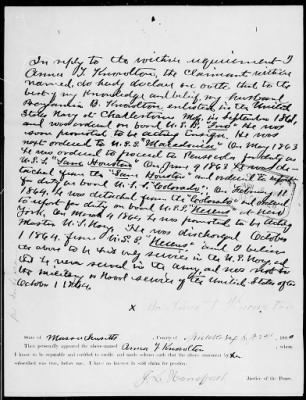 In reply to the within requirement I
Anna F. Knowlton, the Claimant within
named, do hereby declare on oath that to the
best of my knowledge and belief, my husband
Benjamin B. Knowlton, enlisted in the United
States Navy at Charlestown Mass. in September 1861,
and was ordered on board U.S.S. He was
soon promoted to be acting Ensign. He was
next ordered to U.S.S. "Macedonian" On May 1863
he was ordered to proceed to Pensacola, for duty on
U.S.S. "Sam Houston" On 1863 he was de-
tached from the "Sam Houston" and ordered to report
for duty on board U.S.S. "Colorado". On February 10
1864, he was detached from the "Colorado" and ordered
to report for duty on board U.S.S. at New
York, On March 9 1864, he was promoted to be Acting
Master U.S. Navy. He was discharged October
1 1864, from U.S.S. and I believe
the above to be his only services in the U.S. Navy, and
that he never served in the Army, and was not in
the military or Naval services of the United States after
October 1 1864.
x
State of Massachusetts, County of ss.
Then personally appeared the above-named Anna F. Knowlton whom
I know to be reputable and entitled to credit; and made solemn oath that the above statement by her
subscribed was true, before me. And I have no interest in said claim for pension.
Justice of the Peace.